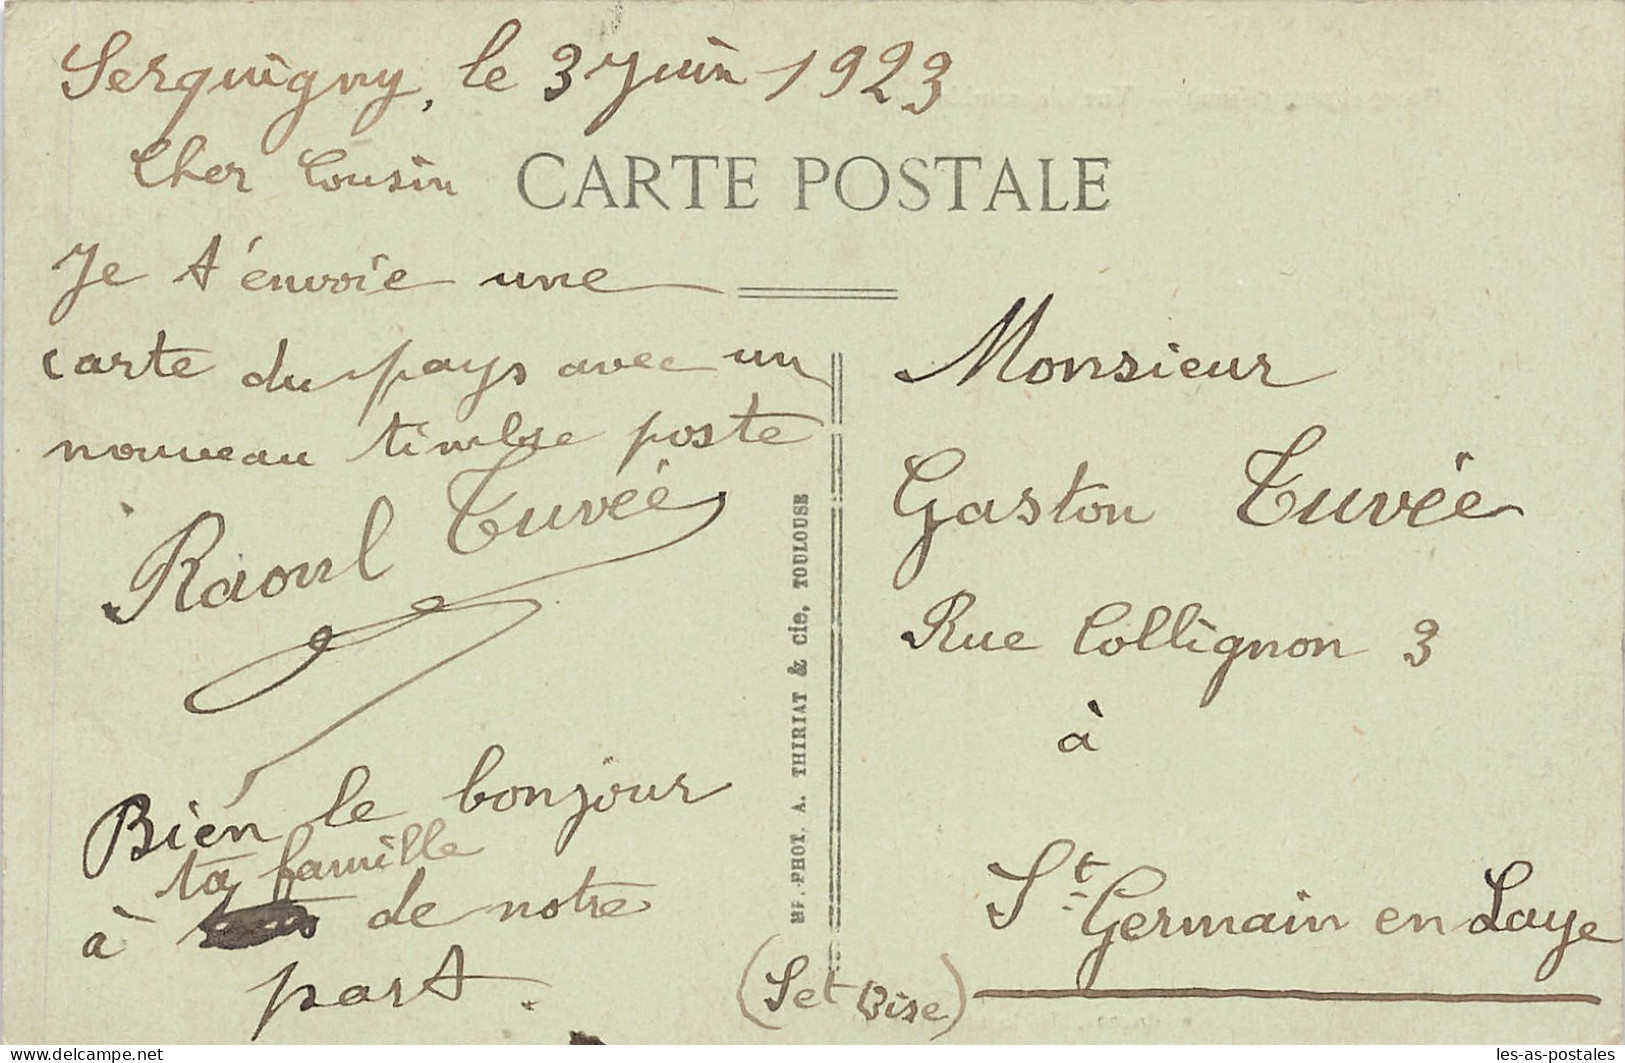 Serquigny, le 3 Juin 1923
Cher Cousin
CARTE POSTALE
Je t'envoie une
carte du pays avec un
nouveau timbre poste
Raoul Tuvée
Bien le bonjour
ta famille
à de notre
part.
PHOT. A. THIRIAT & Cie, TOULOUSE
Monsieur
Gaston Tuvée
Rue Collignon 3
à
St Germain en Laye
(S et Oise)
les-as-postales